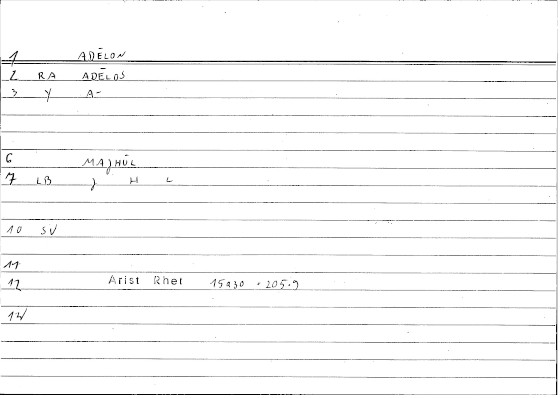 1 ADĒLON
2 RA ADĒLOS
3 Y A-
6 MAJHŪL
7 LB J H L
10 SV
11
12 Arist Rhet 15a30 205.9
14